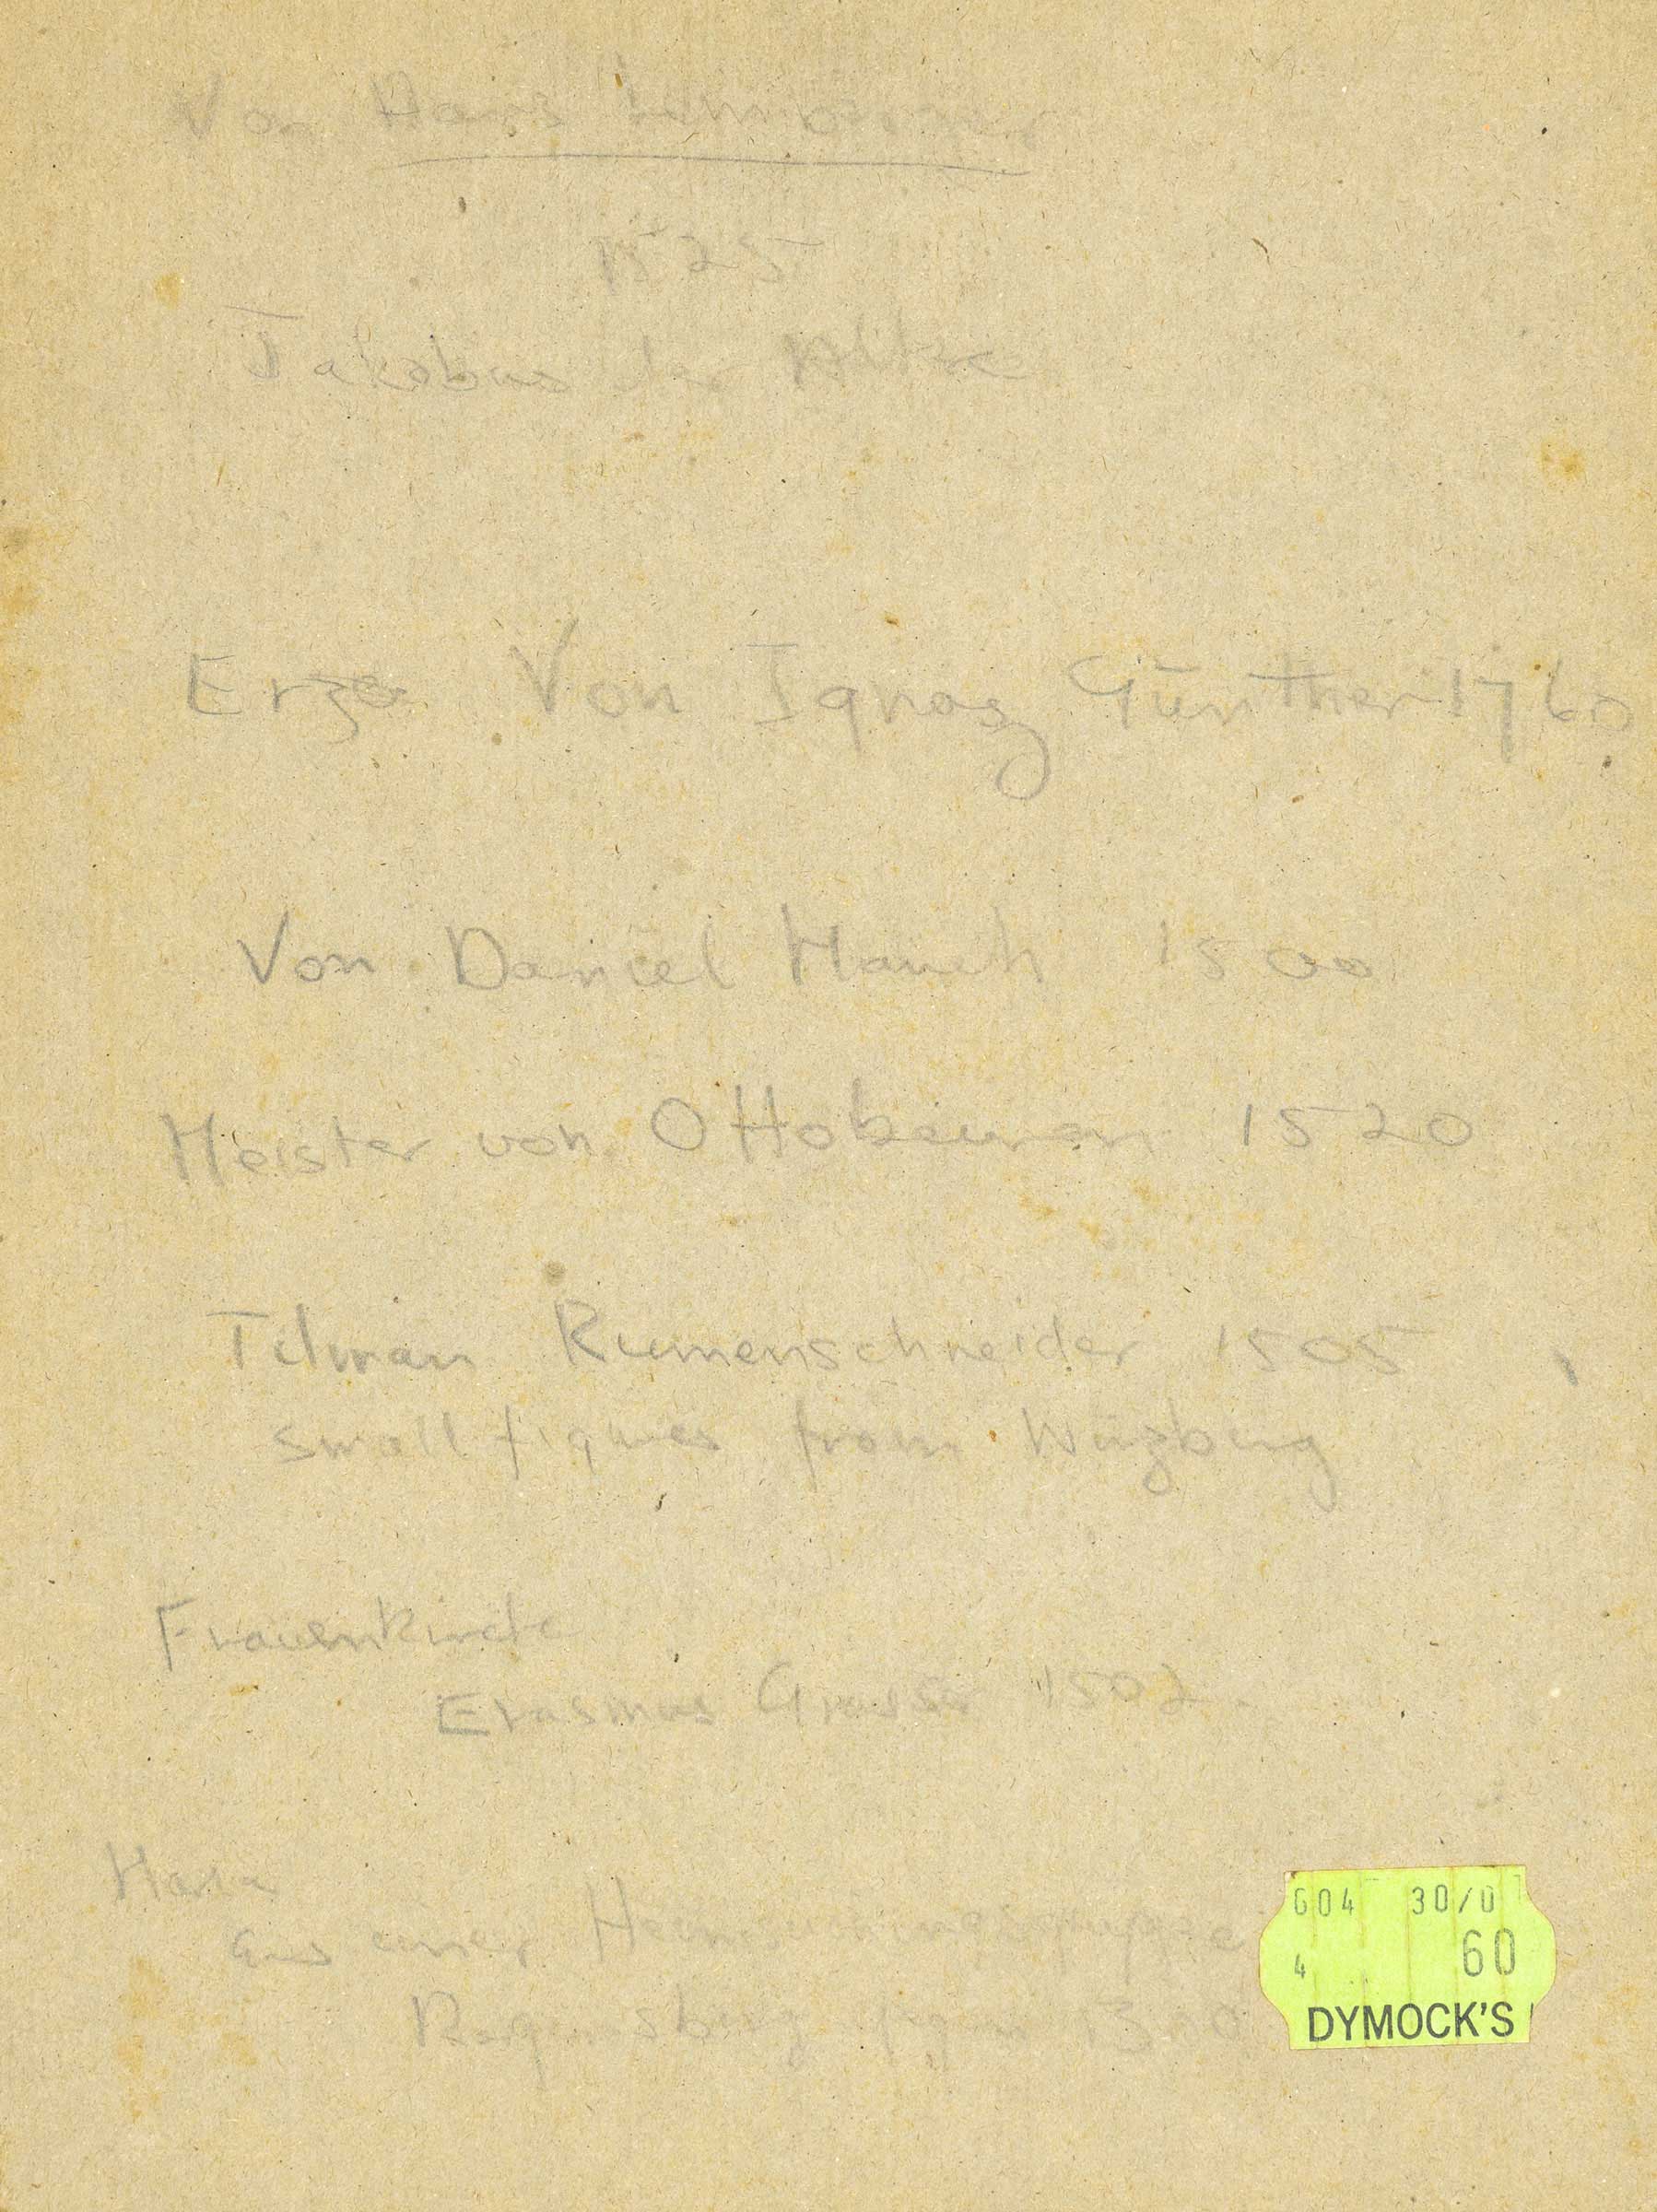 Von Hans Leinberger
1525
Jakobus der Altere
Erze Von Ignaz Günther 1760
Von Daniel Mauch 1500
Meister von Ottobeuren 1520
Tilman Riemenschneider 1505
small figures from Würzburg
Frauenkirche
Erasmus Grasser 1502
Maria
aus einer Heimsuchungsgruppe
Regensburg
604 30/0
4 60
DYMOCK'S